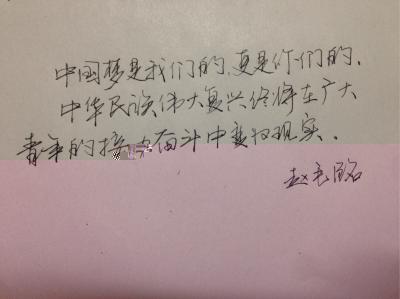 中国梦是我们的,更是你们的,
中华民族伟大复兴终将在广大
青年的接力奋斗中变为现实.
赵